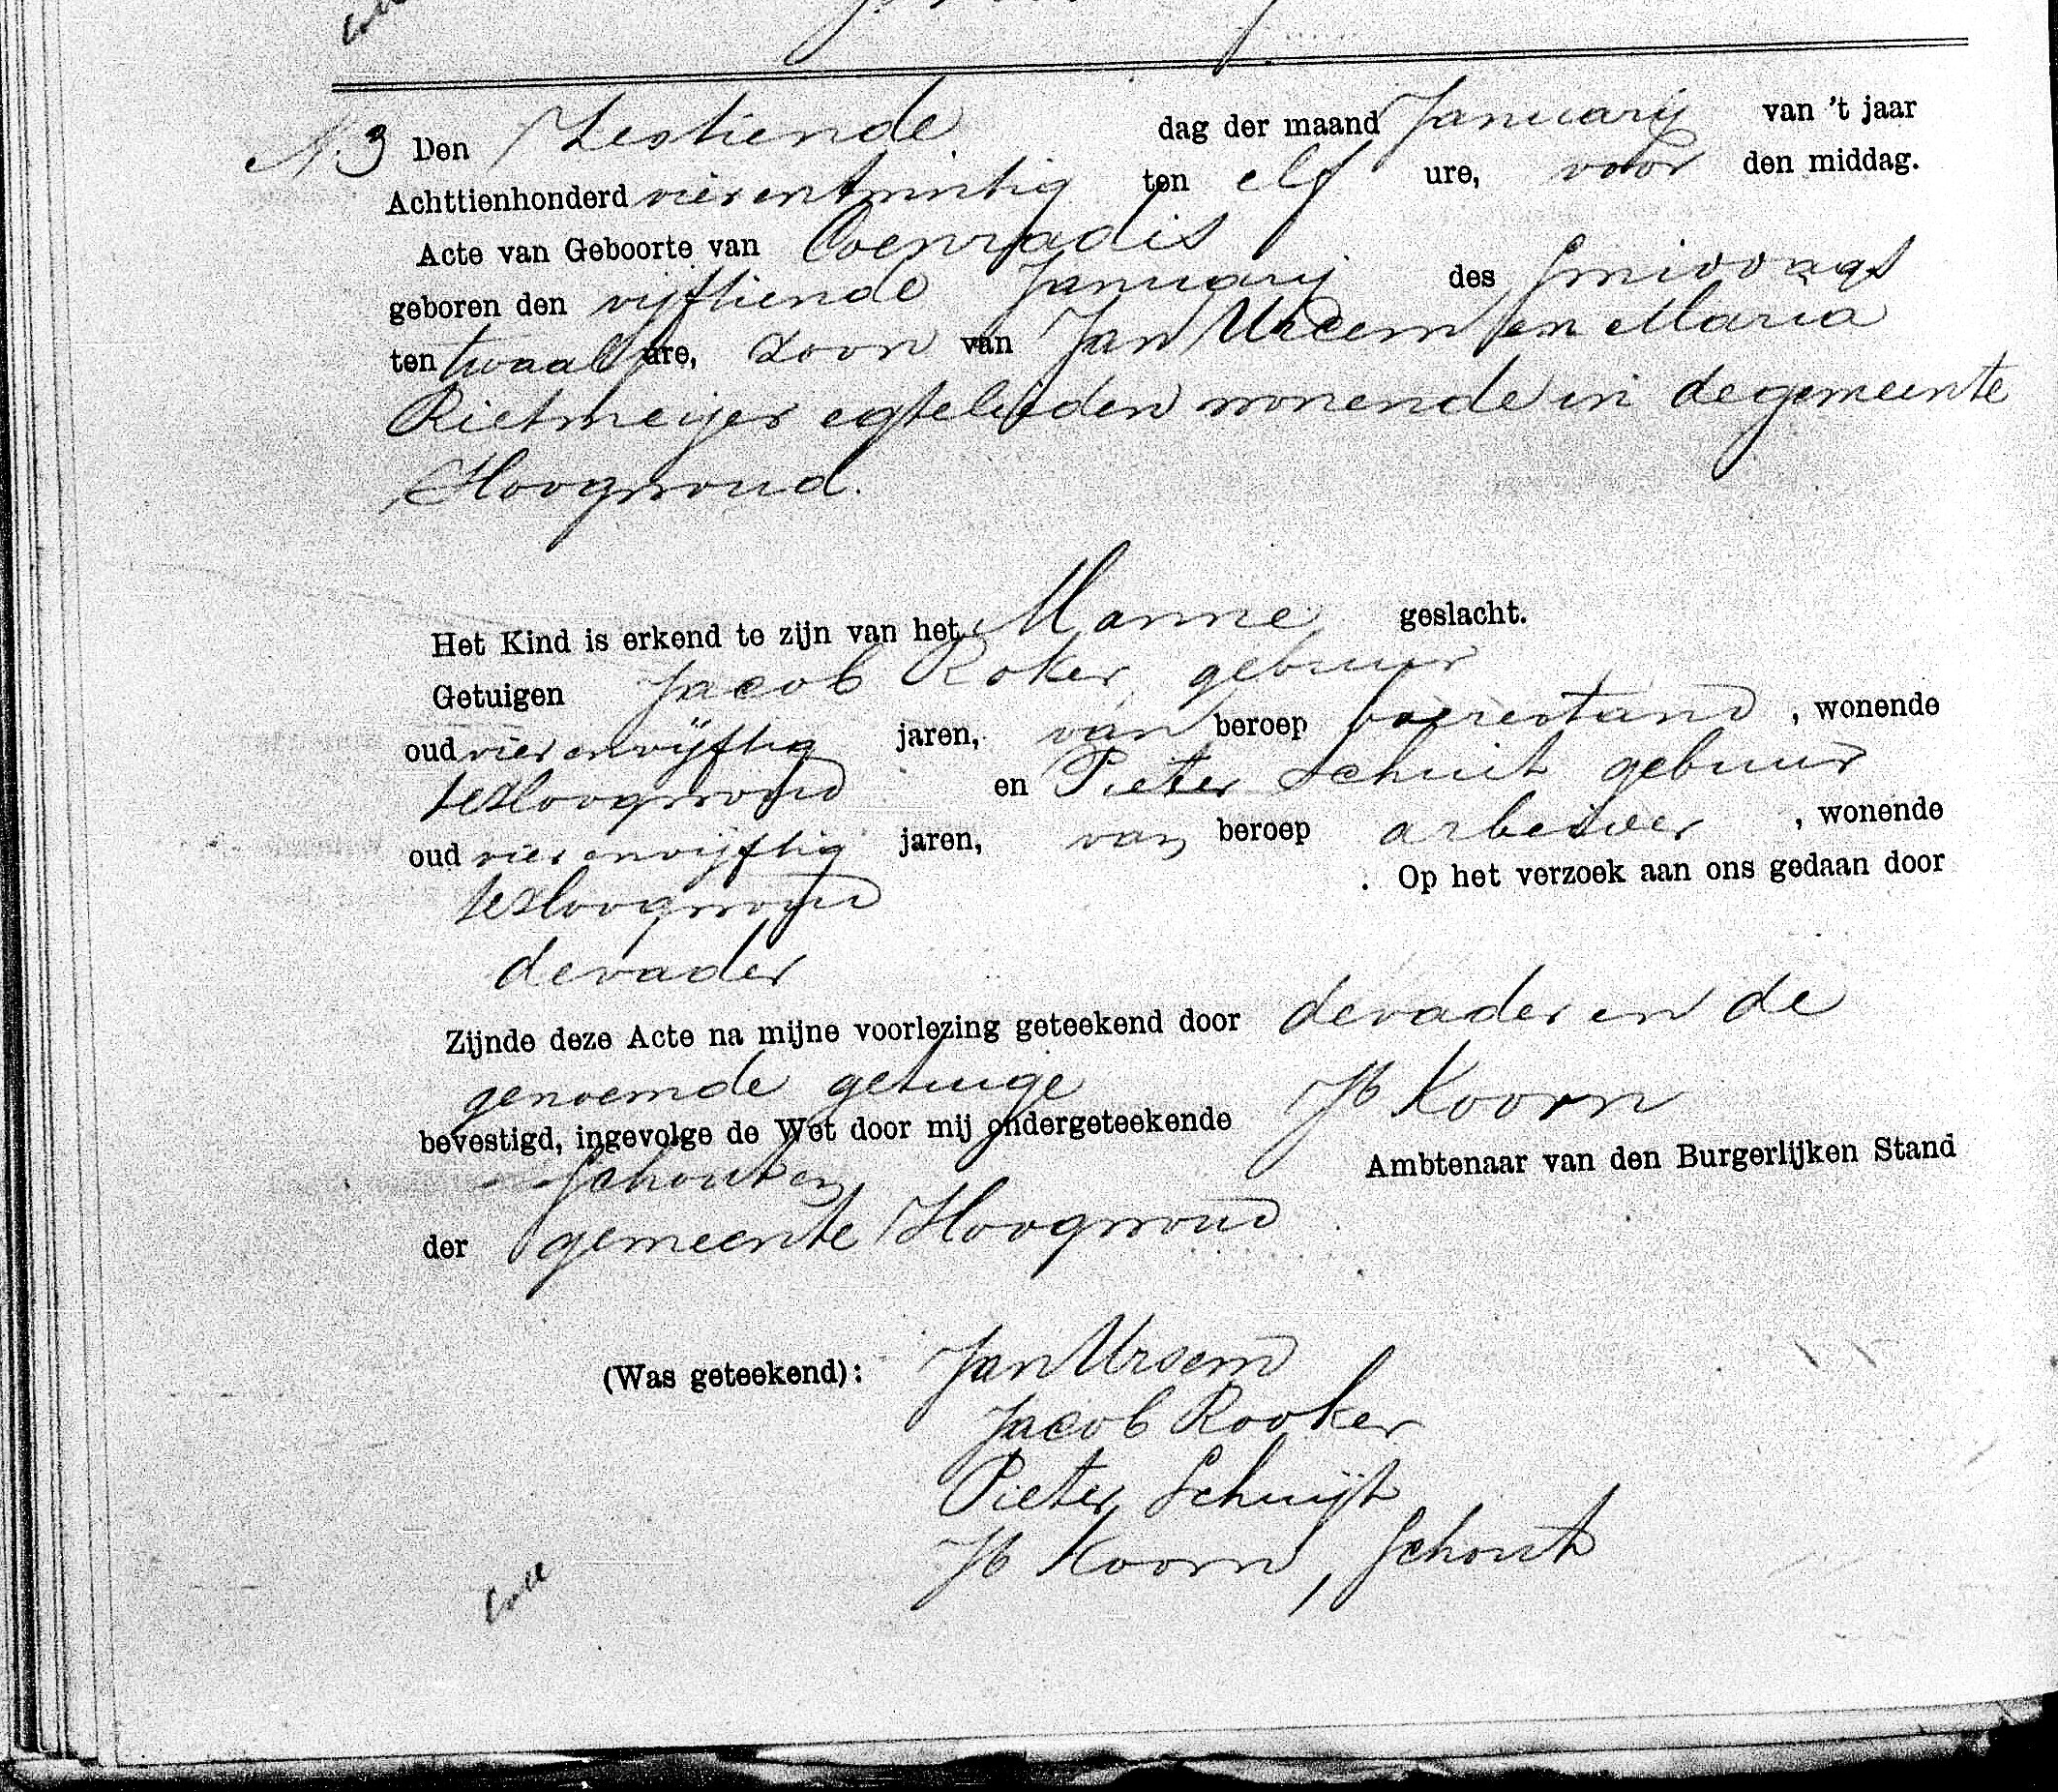 N. 3 Den Zestiende dag der maand Januarij van 't jaar
Achttienhonderd vierentwintig ten elf ure, voor den middag.
Acte van Geboorte van Coenradis
geboren den vijftiende Januarij des smiddags
ten twaalf ure, zoon van Jan Ursem en Maria
Rietmeijer egtelieden wonende in de gemeente
Hoogwoud.
Het Kind is erkend te zijn van het Manne geslacht.
Getuigen Jacob Roker gebuur
oud vierenvijftig jaren, van beroep boerestand, wonende
te Hoogwoud en Pieter Schuit gebuur
oud vierenvijftig jaren, van beroep arbeider, wonende
te Hoogwoud . Op het verzoek aan ons gedaan door
de vader
Zijnde deze Acte na mijne voorlezing geteekend door de vader en de
genoemde getuige
bevestigd, ingevolge de Wet door mij ondergeteekende Jb Koorn
Schout en Ambtenaar van den Burgerlijken Stand
der gemeente Hoogwoud
(Was geteekend): Jan Ursem
Jacob Rooker
Pieter Schuijt
Jb Koorn, Schout